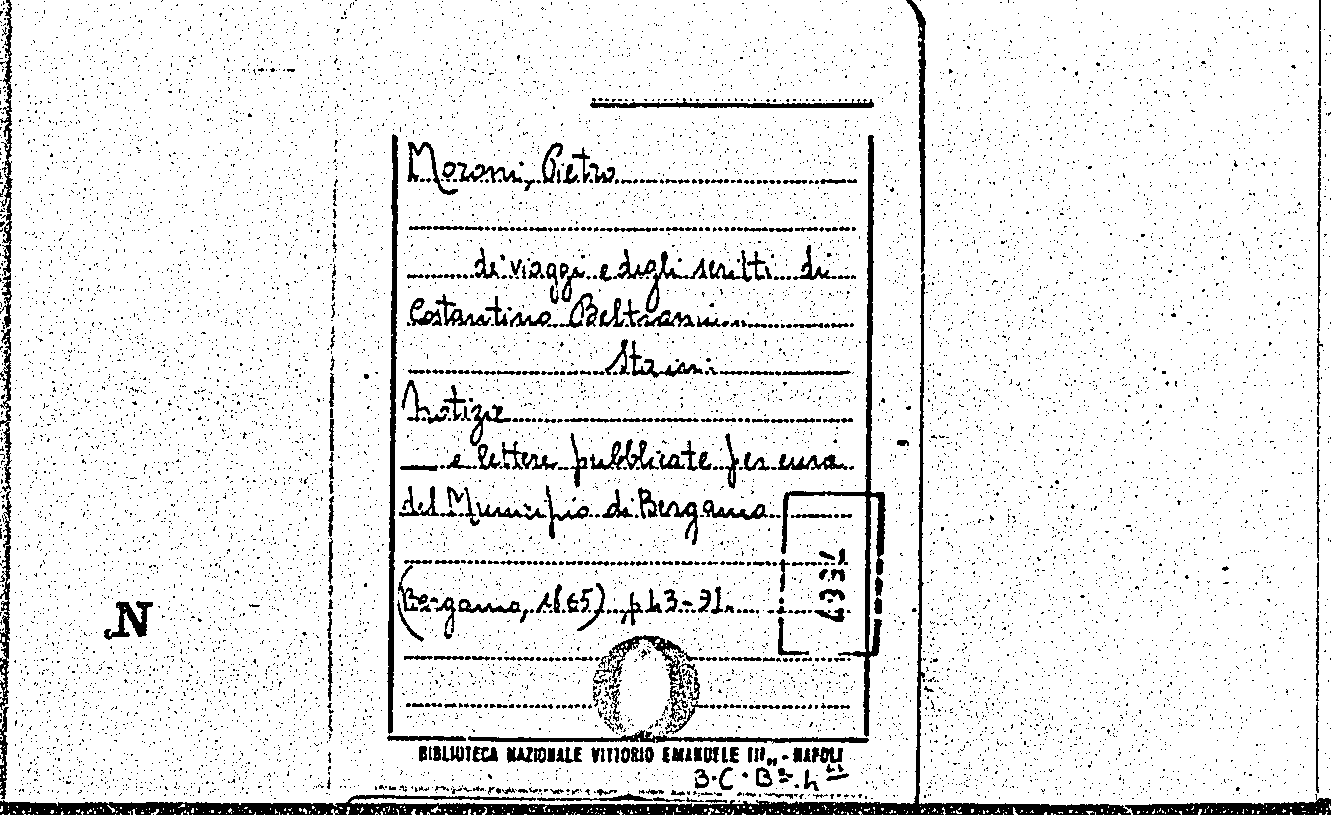 Moroni, Pietro
dei viaggi e degli scritti di
Costantino Beltrami
Sta in:
Notizie
e lettere pubblicate per cura
del Municipio di Bergamo
(Bergamo, 1865) p.
N
BIBLIOTECA NAZIONALE VITTORIO EMANUELE III,, - NAPOLI